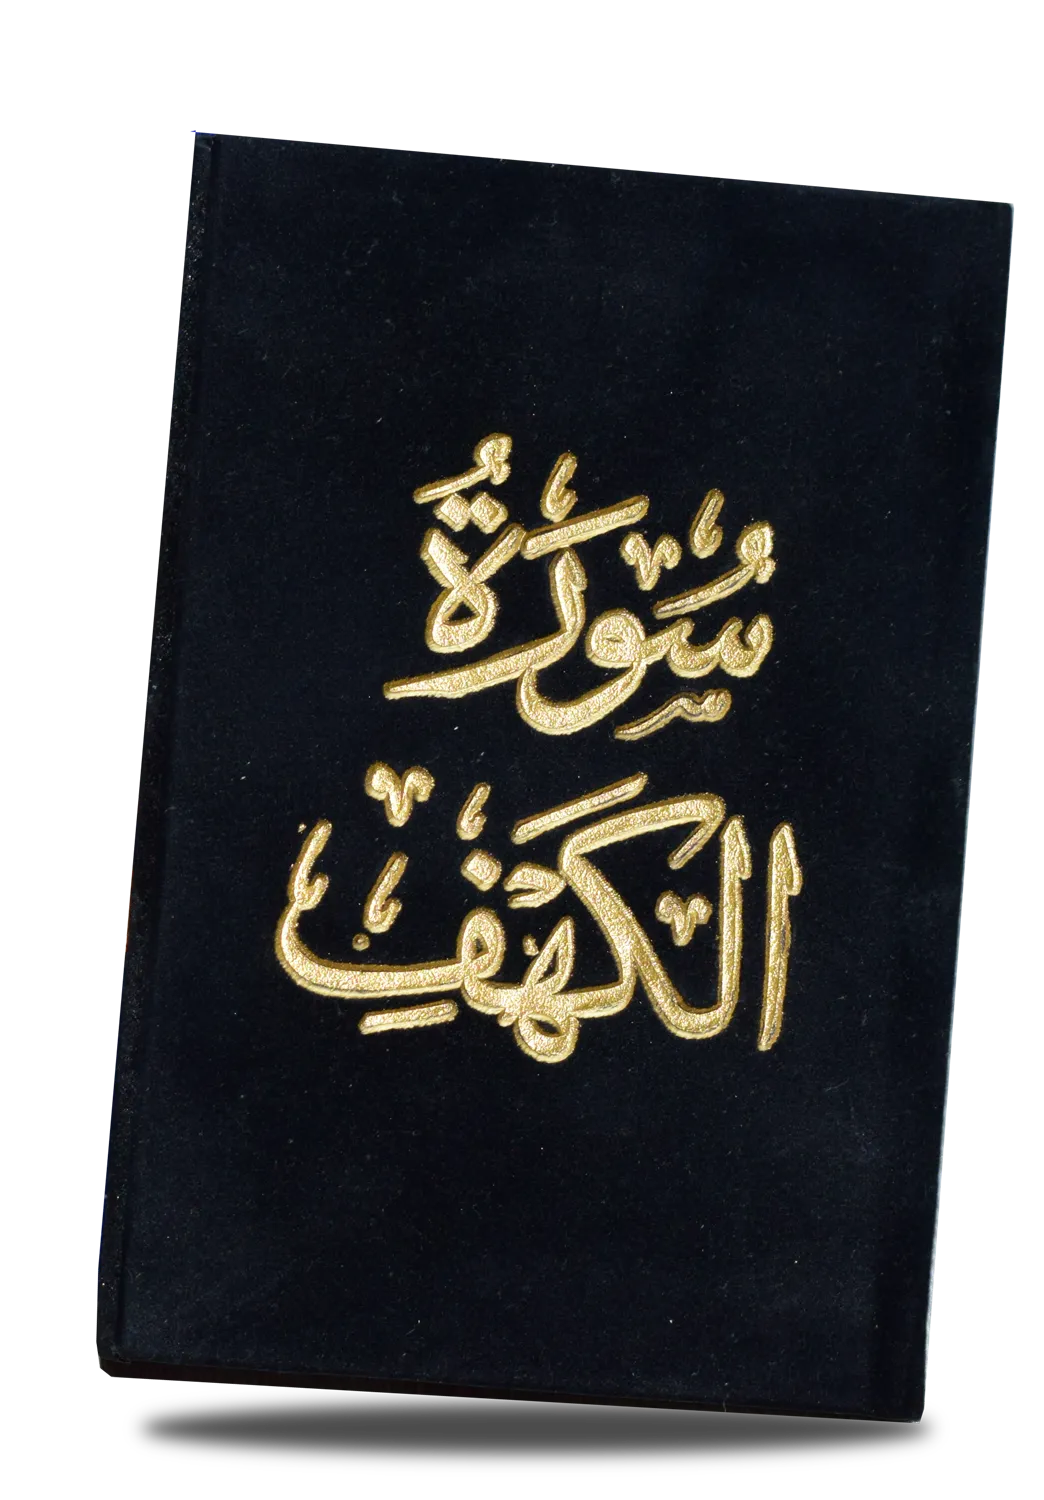 سُورَةُ
الكَهْفِ